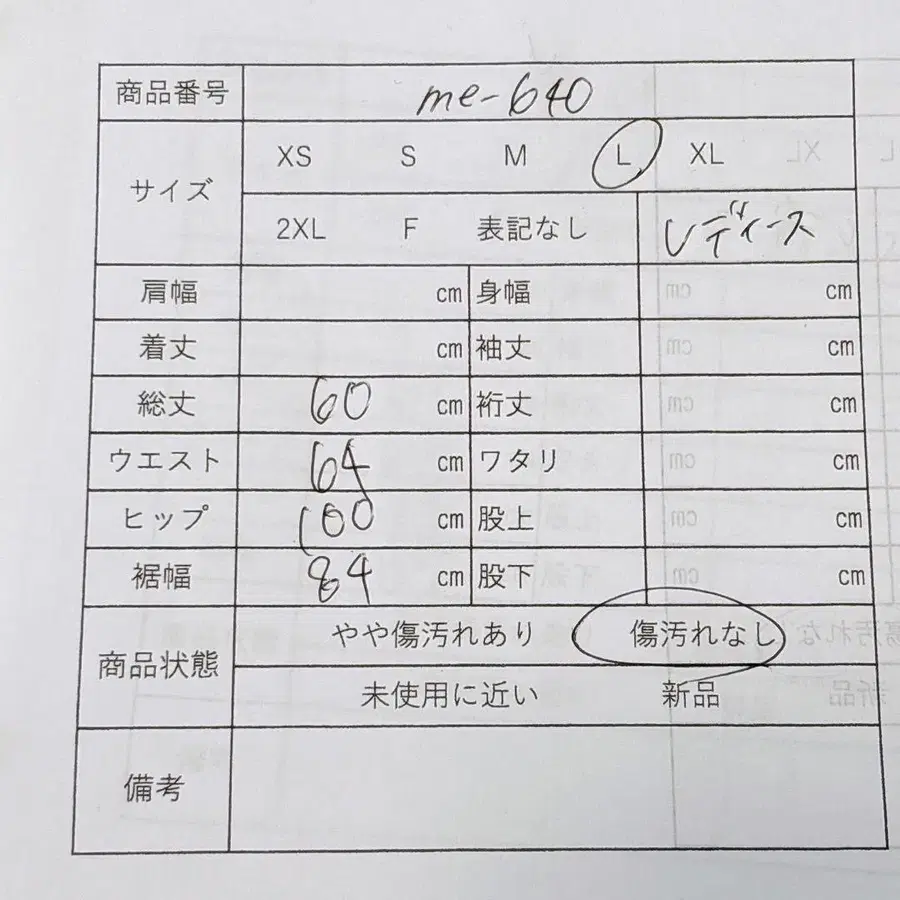 商品番号 me-640
サイズ XS S M L XL
2XL F 表記なし レディース
肩幅 cm 身幅 cm
着丈 cm 袖丈 cm
総丈 60 cm 裄丈 cm
ウエスト 64 cm ワタリ cm
ヒップ 100 cm 股上 cm
裾幅 84 cm 股下 cm
商品状態 やや傷汚れあり 傷汚れなし
未使用に近い 新品
備考